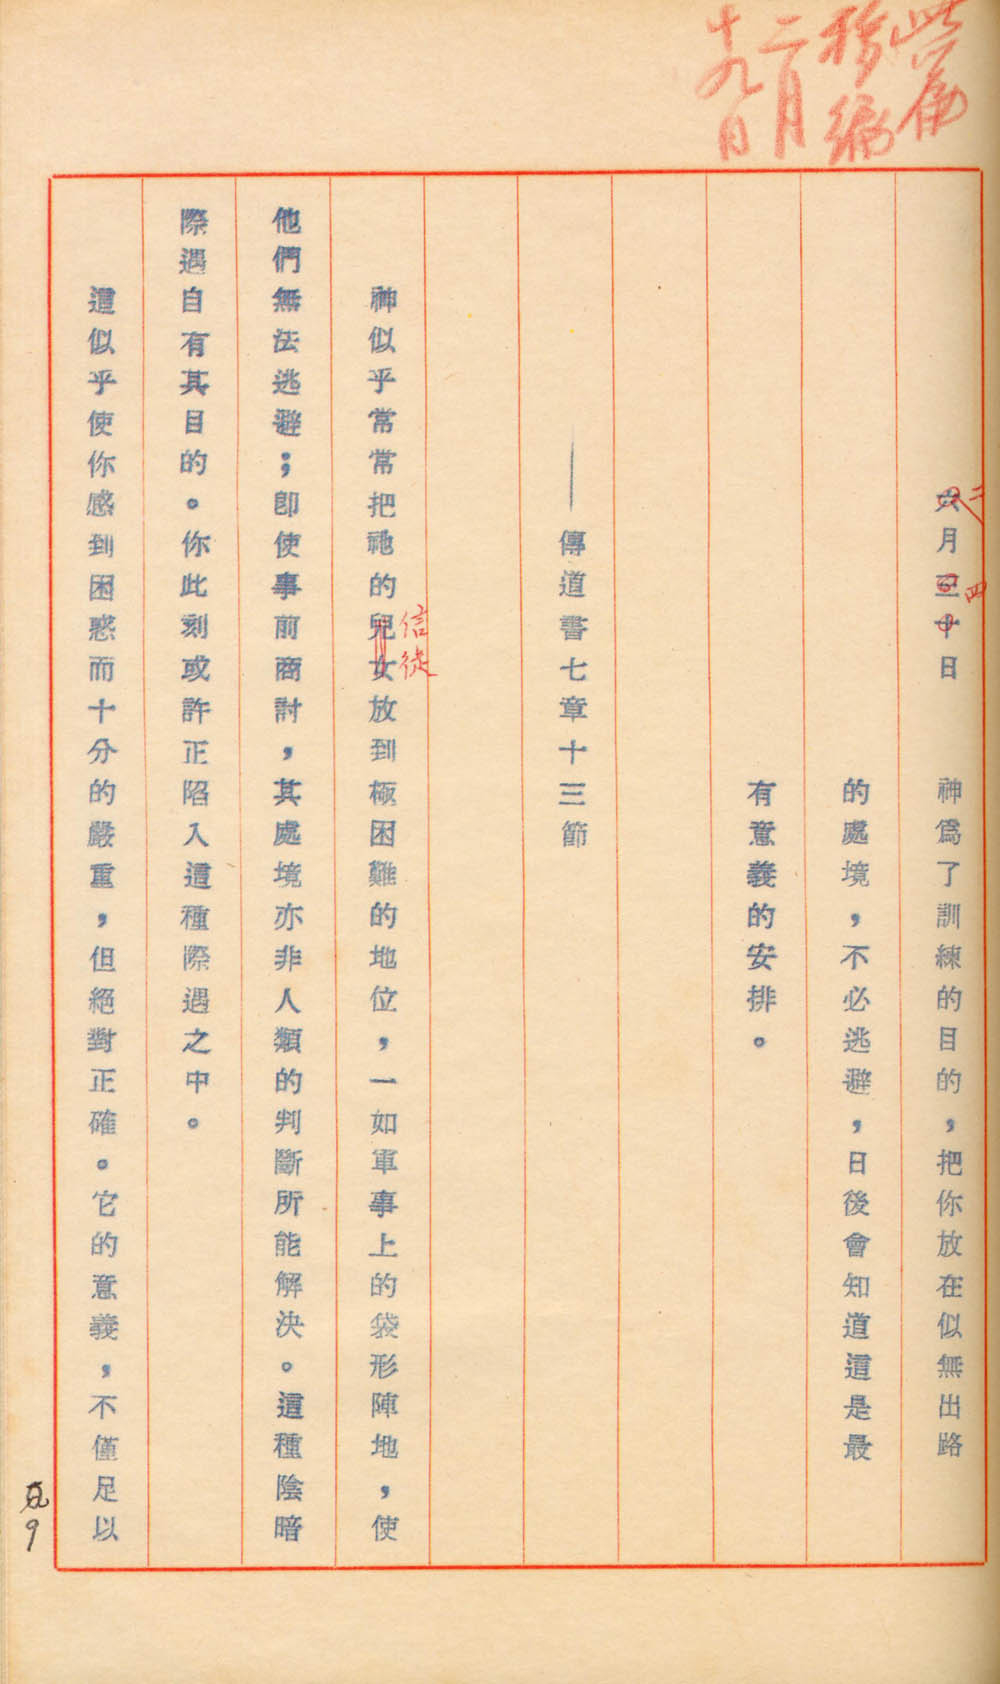 此篇
移編
二月
十九日
六月三十日　神為了訓練的目的，把你放在似無出路
二
四
的處境，不必逃避，日後會知道這是最
有意義的安排。
——傳道書七章十三節
神似乎常常把祂的兒女放到極困難的地位，一如軍事上的袋形陣地，使
信徒
他們無法逃避；即使事前商討，其處境亦非人類的判斷所能解決。這種陰暗
際遇自有其目的。你此刻或許正陷入這種際遇之中。
這似乎使你感到困惑而十分的嚴重，但絕對正確。它的意義，不僅足以
9